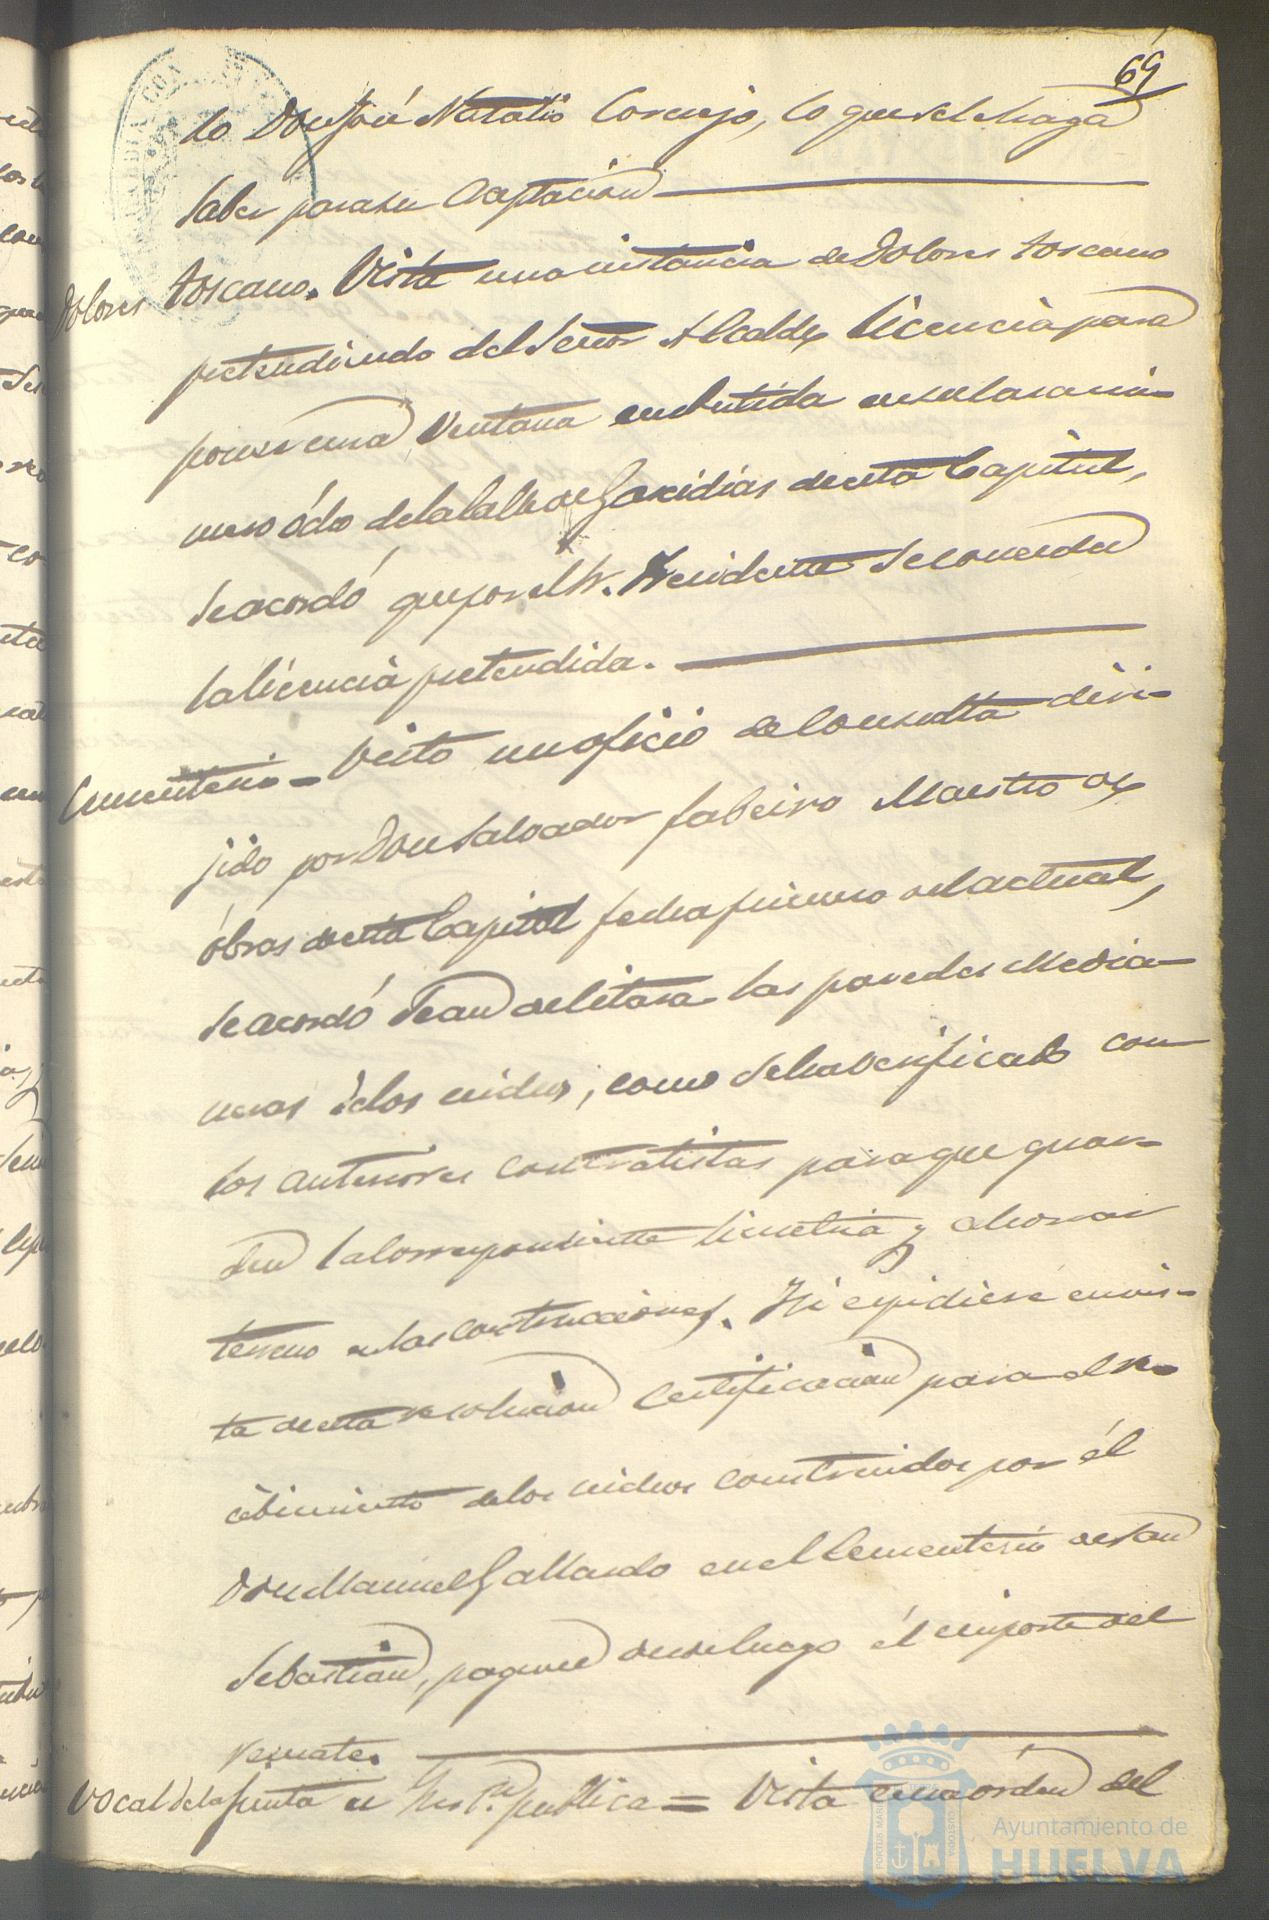 69
lo Don José Natalio Cornejo, lo que se le haga
saber para su aceptacion
Dolores Toscano. Vista una instancia de Dolores Toscano
pretendiendo del Señor Alcalde licencia para
poner una Ventana embutida en su casa nú-
mero ocho de la calle de Garcidias de esta Capital,
se acordó que por el Sr. Presidente se conceda
la licencia pretendida.
Cementerio = Visto un oficio de consulta diri-
jido por Don Salvador Fabeiro Maestro de
óbras de esta Capital fecha primero del actual,
se acordó sean de citara las paredes media-
neras á los nidos, como se ha verificado con
los anteriores contratistas para que guar-
den la correspondiente simetria y ahorrar
terreno en las construcciones. Y si espidiese en vis-
ta de esta resolucion certificacion para el re-
cibimiento de los nichos construidos por él
Don Manuel Gallardo en el Cementerio de San
Sebastian, paguese desde luego él importe del
remate.
Vocal de la Junta de Inst.ª publica = Vista una órden del
Ayuntamiento de
HUELVA